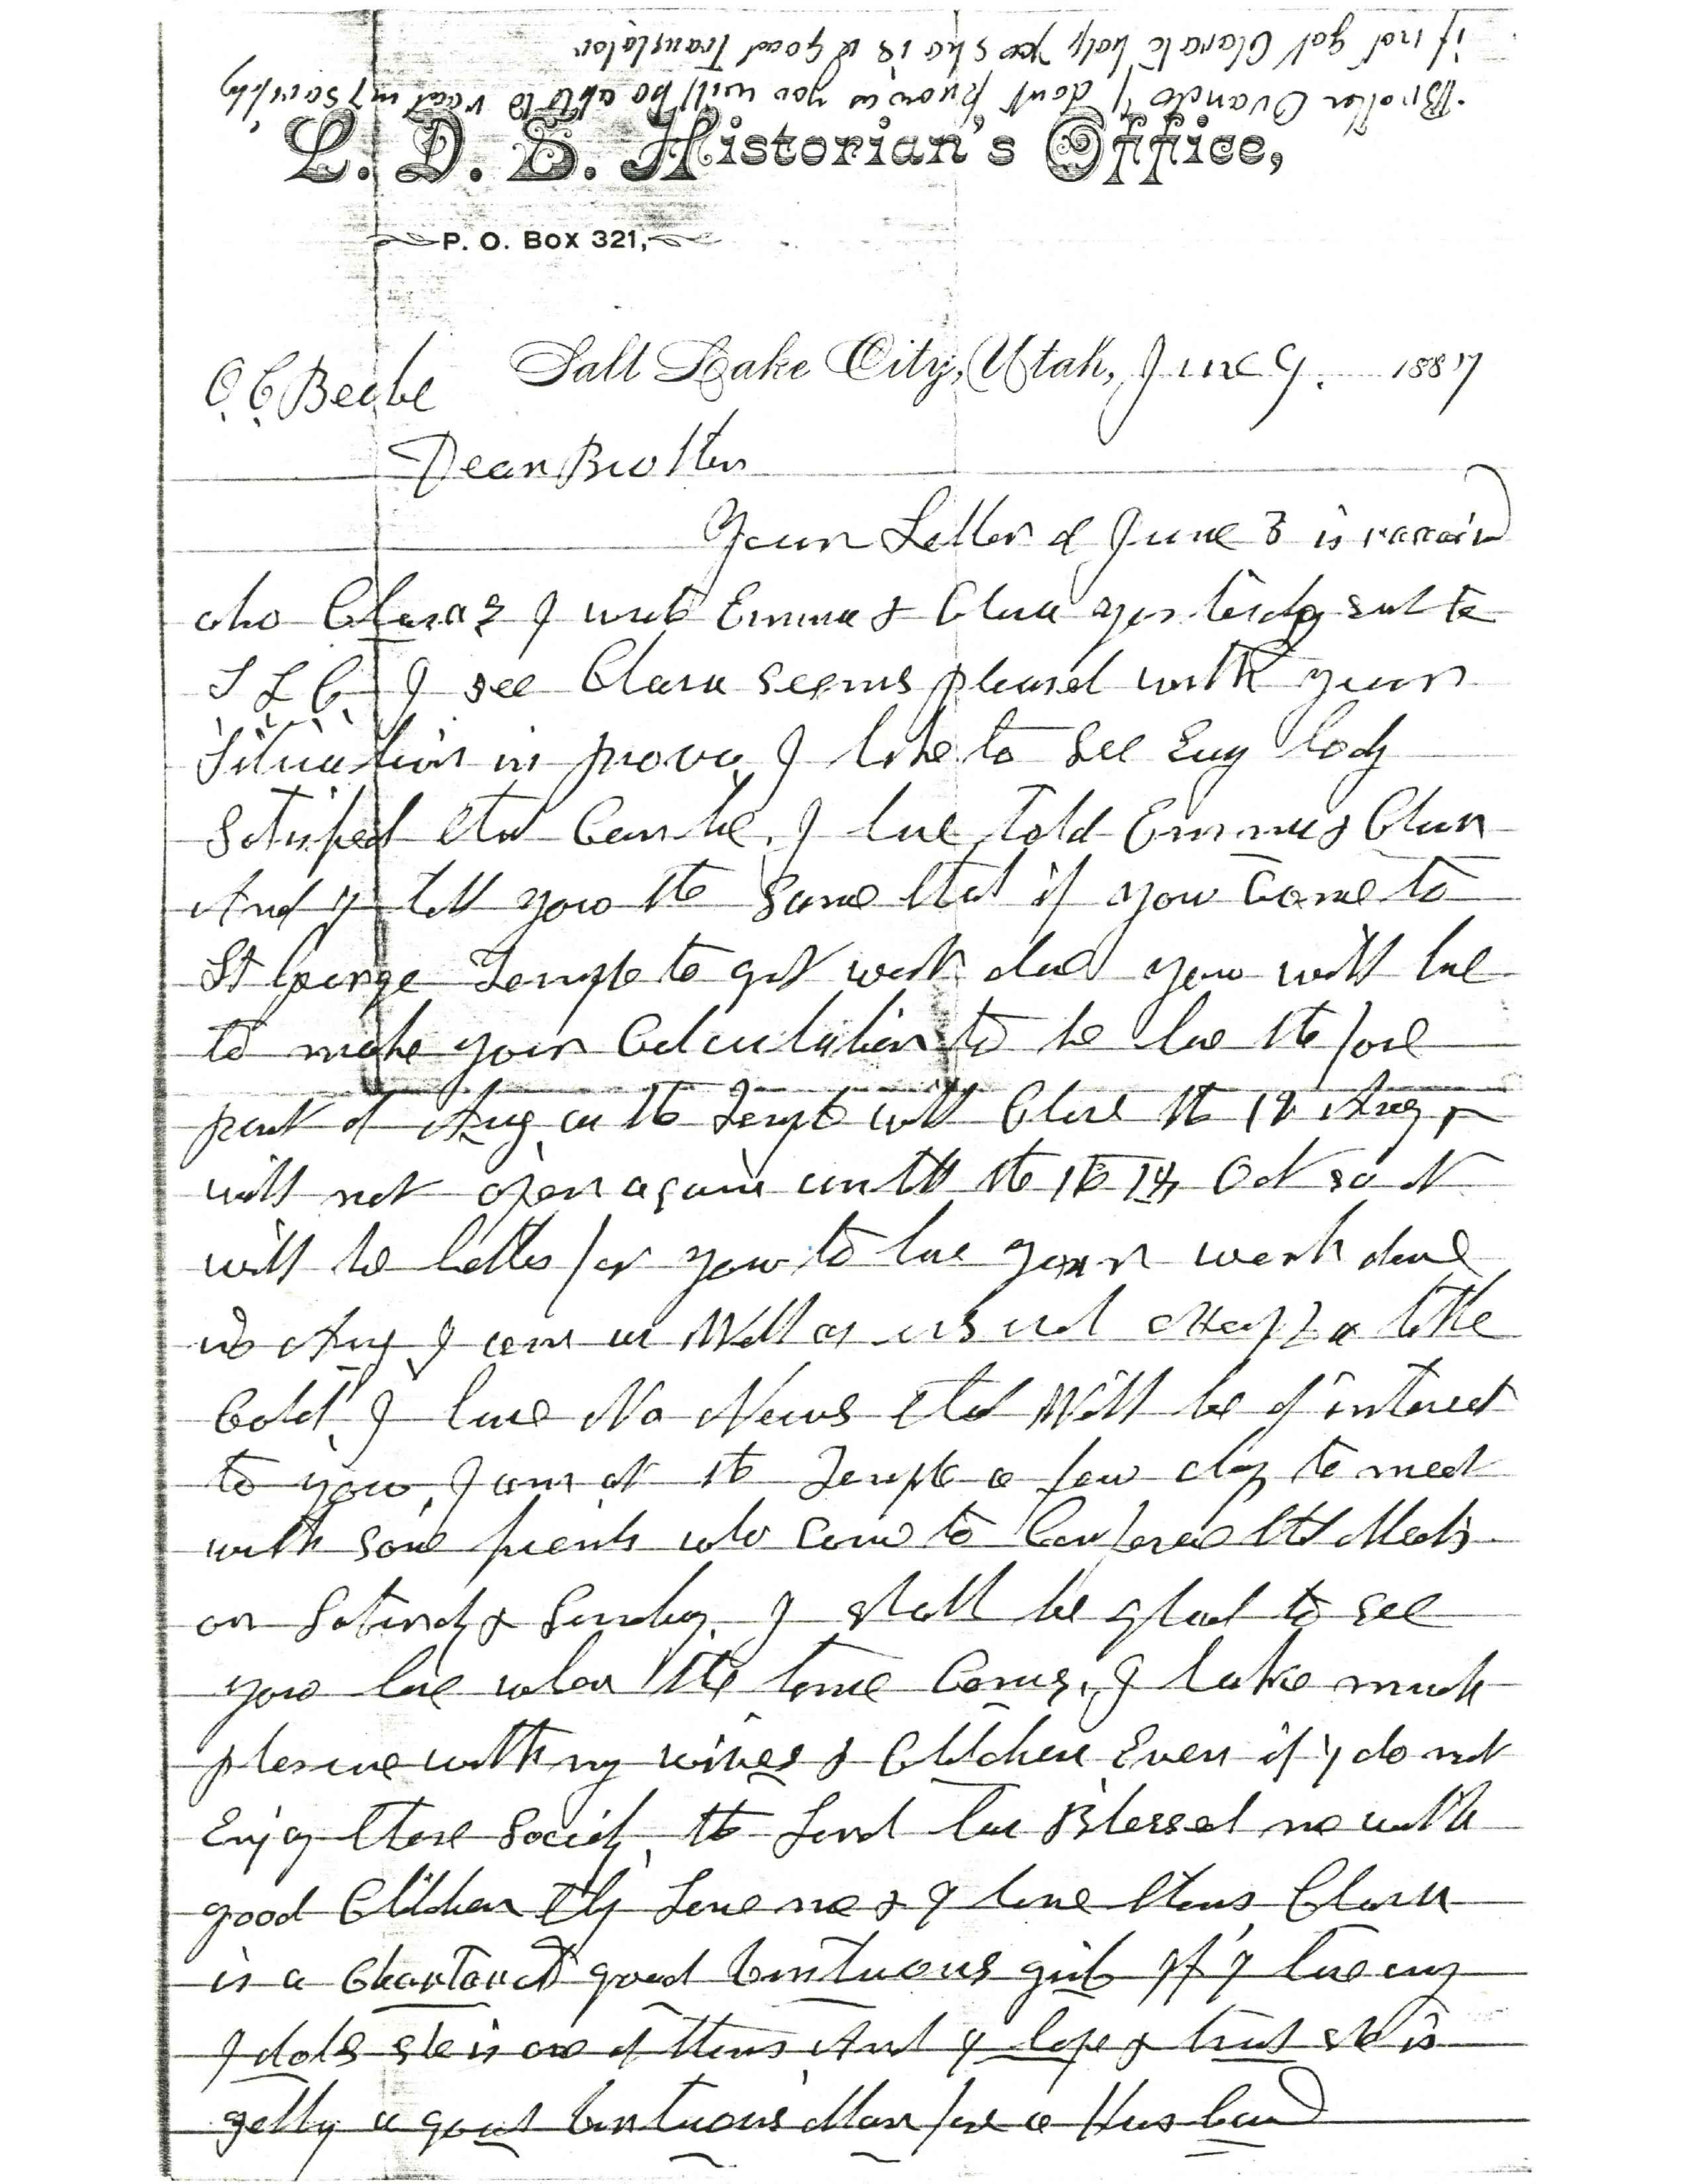 Brother Ovando I dont know as you will be able to read my scribbling
if not get Clara to help you she is a good Translator
L. D. S. Historian's Office,
P. O. Box 321,
Salt Lake City, Utah, June 9. 1887
O. C. Beebe
Dear Brother
Your Letter of June 3 is receivd
also Claras I wrote Emma & Clara yesterday sent to
S L C. I see Clara seems pleased with your
situation in provo, I like to see Evry body
satisfied that Can be. I have told Emma & Clara
And I tell you the same that if you Come to
St George Temple to get work done you will have
to make your Calculation to be here the fore
part of Aug, as the Temple will Close the Aug &
will not open again untill the Oct so it
will be better for you to have your work done
in Aug I am as Well as usual Except a little
Cold, I have No News that Will be of interest
to you, I am at the Temple a few days to meet
with some friends who Come to Conference that Meets
on Saturdy & Sunday. I shall be glad to see
you here when the time Comes, I take much
plesure with my wives & Children Even if I do not
Enjoy there Society, the Lord has Blessed me with
good Children They Love me & I love them, Clara
is a good virtuous girl If I have any
Idols she is one of them And I hope & trust she is
getting a good virtuous Man for a Husband